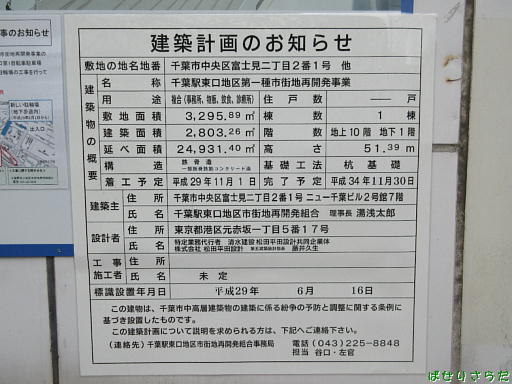 事のお知らせ
建築計画のお知らせ
敷地の地名地番 千葉市中央区富士見二丁目2番1号 他
建築物の概要
名称 千葉駅東口地区第一種市街地再開発事業
用途 複合(事務所、物販、飲食、診療所) 住戸数 ― 戸
敷地面積 3,295.89㎡ 棟数 1棟
建築面積 2,803.26㎡ 階数 地上10階 地下1階
延べ面積 24,931.40㎡ 高さ 51.39m
構造 鉄骨造 一部鉄骨鉄筋コンクリート造 基礎工法 杭基礎
着工予定 平成29年11月1日 完了予定 平成34年11月30日
建築主 住所 千葉市中央区富士見二丁目2番1号 ニュー千葉ビル2号館7階
氏名 千葉駅東口地区市街地再開発組合 理事長 湯浅太郎
設計者 住所 東京都港区元赤坂一丁目5番17号
氏名 特定業務代行者 清水建設・松田平田設計共同企業体
株式会社 松田平田設計 藤井久生
工事施工者 住所
氏名 未定
標識設置年月日 平成29年 6月 16日
この建物は、千葉市中高層建築物の建築に係る紛争の予防と調整に関する条例に
基づき設置したものです。
この建築計画について説明を求められる方は、下記へご連絡下さい。
(連絡先) 千葉駅東口地区市街地再開発組合事務局 電話 (043)225-8848
担当 谷口・左官
新しい駐輪場
(地下歩道内)
出入口
ぱせりさらだ